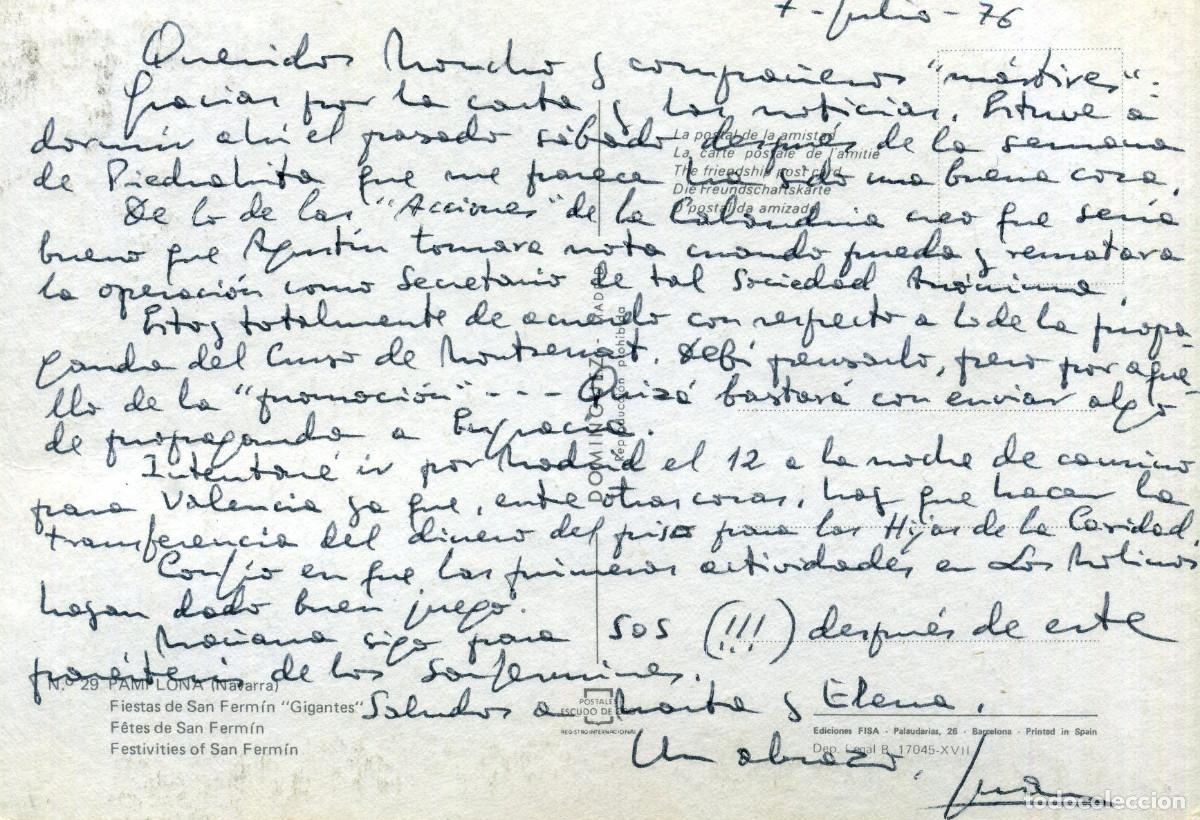 7 - Julio - 76
Queridos Moncho y compañeros "mártires".
Gracias por la carta y las noticias. Estuve a
dormir ahí el pasado sábado después de la semana
de Piedrahita que me parece ha sido una buena cosa.
De lo de las "Acciones" de la Calandria creo que sería
bueno que Agustín tomara nota cuando pueda y rematara
la operación como Secretario de tal Sociedad Anónima.
Estoy totalmente de acuerdo con respecto a lo de la propa-
ganda del Curso de Montserrat. Debí pensarlo, pero por aque-
llo de la "promoción" - - - Quizá bastará con enviar algo
de propaganda a
Intentaré ir por Madrid el 12 a la noche de camino
para Valencia ya que, entre otras cosas, hay que hacer la
transferencia del dinero del piso para las Hijas de la Caridad.
Confío en que las primeras actividades en Los Molinos
hayan dado buen juego.
Mañana sigo para SOS (!!!) después de este
de los sanfermines.
Saludos a Marta y Elena.
Un abrazo.
Juan
La postal de la amistad
La carte postale de l'amitié
The friendship post card
Die Freundschaftskarte
O postal da amizade
DOMINGUEZ - MADRID
Reproducción prohibida
N.º 29 PAMPLONA (Navarra)
Fiestas de San Fermín "Gigantes"
Fêtes de San Fermín
Festivities of San Fermín
POSTALES
ESCUDO DE
REGISTRO INTERNACIONAL
Ediciones FISA - Palaudarias, 26 - Barcelona - Printed in Spain
Dep. Legal B. 17045-XVII
todocoleccion